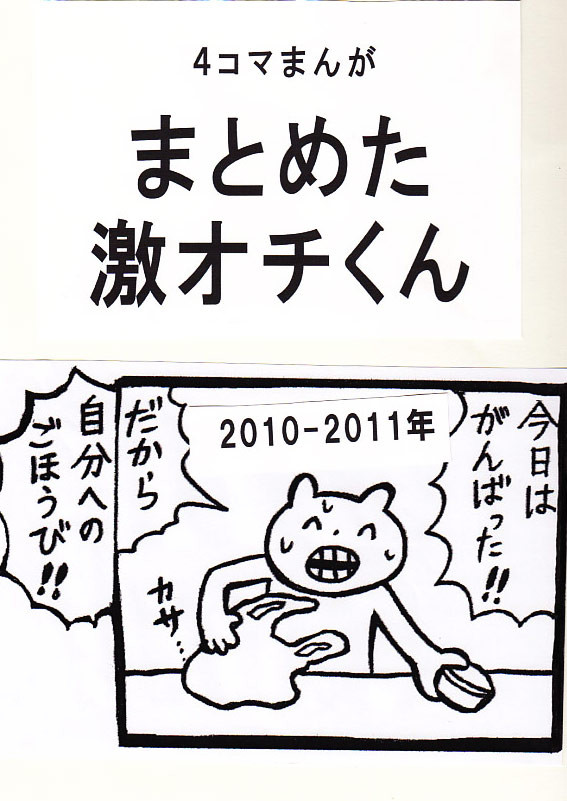 4コマまんが
まとめた
激オチくん
2010-2011年
今日は
がんばった!!
だから
自分への
ごほうび!!
カサ…